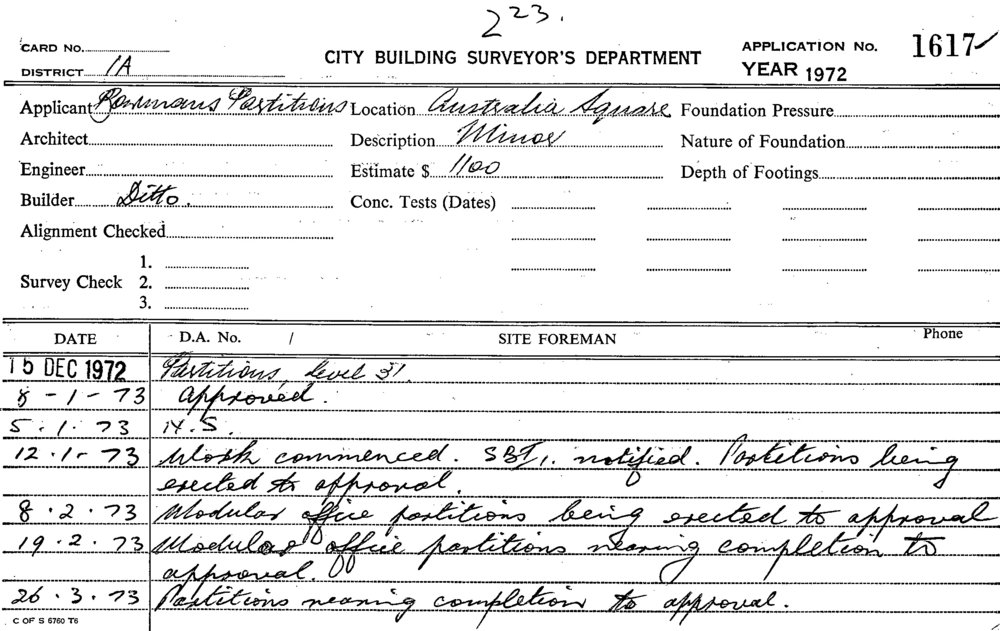 223.
CARD No.
DISTRICT 1A
CITY BUILDING SURVEYOR'S DEPARTMENT
APPLICATION No. 1617
YEAR 1972
Applicant Rowmans Partitions Location Australia Square Foundation Pressure
Architect Description Minor Nature of Foundation
Engineer Estimate $ 1100 Depth of Footings
Builder Ditto. Conc. Tests (Dates)
Alignment Checked
1.
Survey Check 2.
3.
DATE D.A. No. / SITE FOREMAN Phone
15 DEC 1972 Partitions, level 31.
8-1-73 Approved.
5.1.73 N.S.
12.1-73 Work commenced. notified. Partitions being
erected to approval.
8.2.73 Modular office partitions being erected to approval
19.2.73 Modular office partitions nearing completion to
approval.
26.3.73 Partitions nearing completion to approval.
C OF S 6760 T6